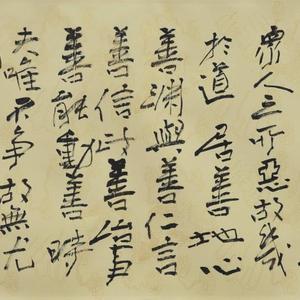 衆人之所惡故幾
於道居善地心
善淵與善仁言
善信政善治事
善能動善時
夫唯不争故無尤